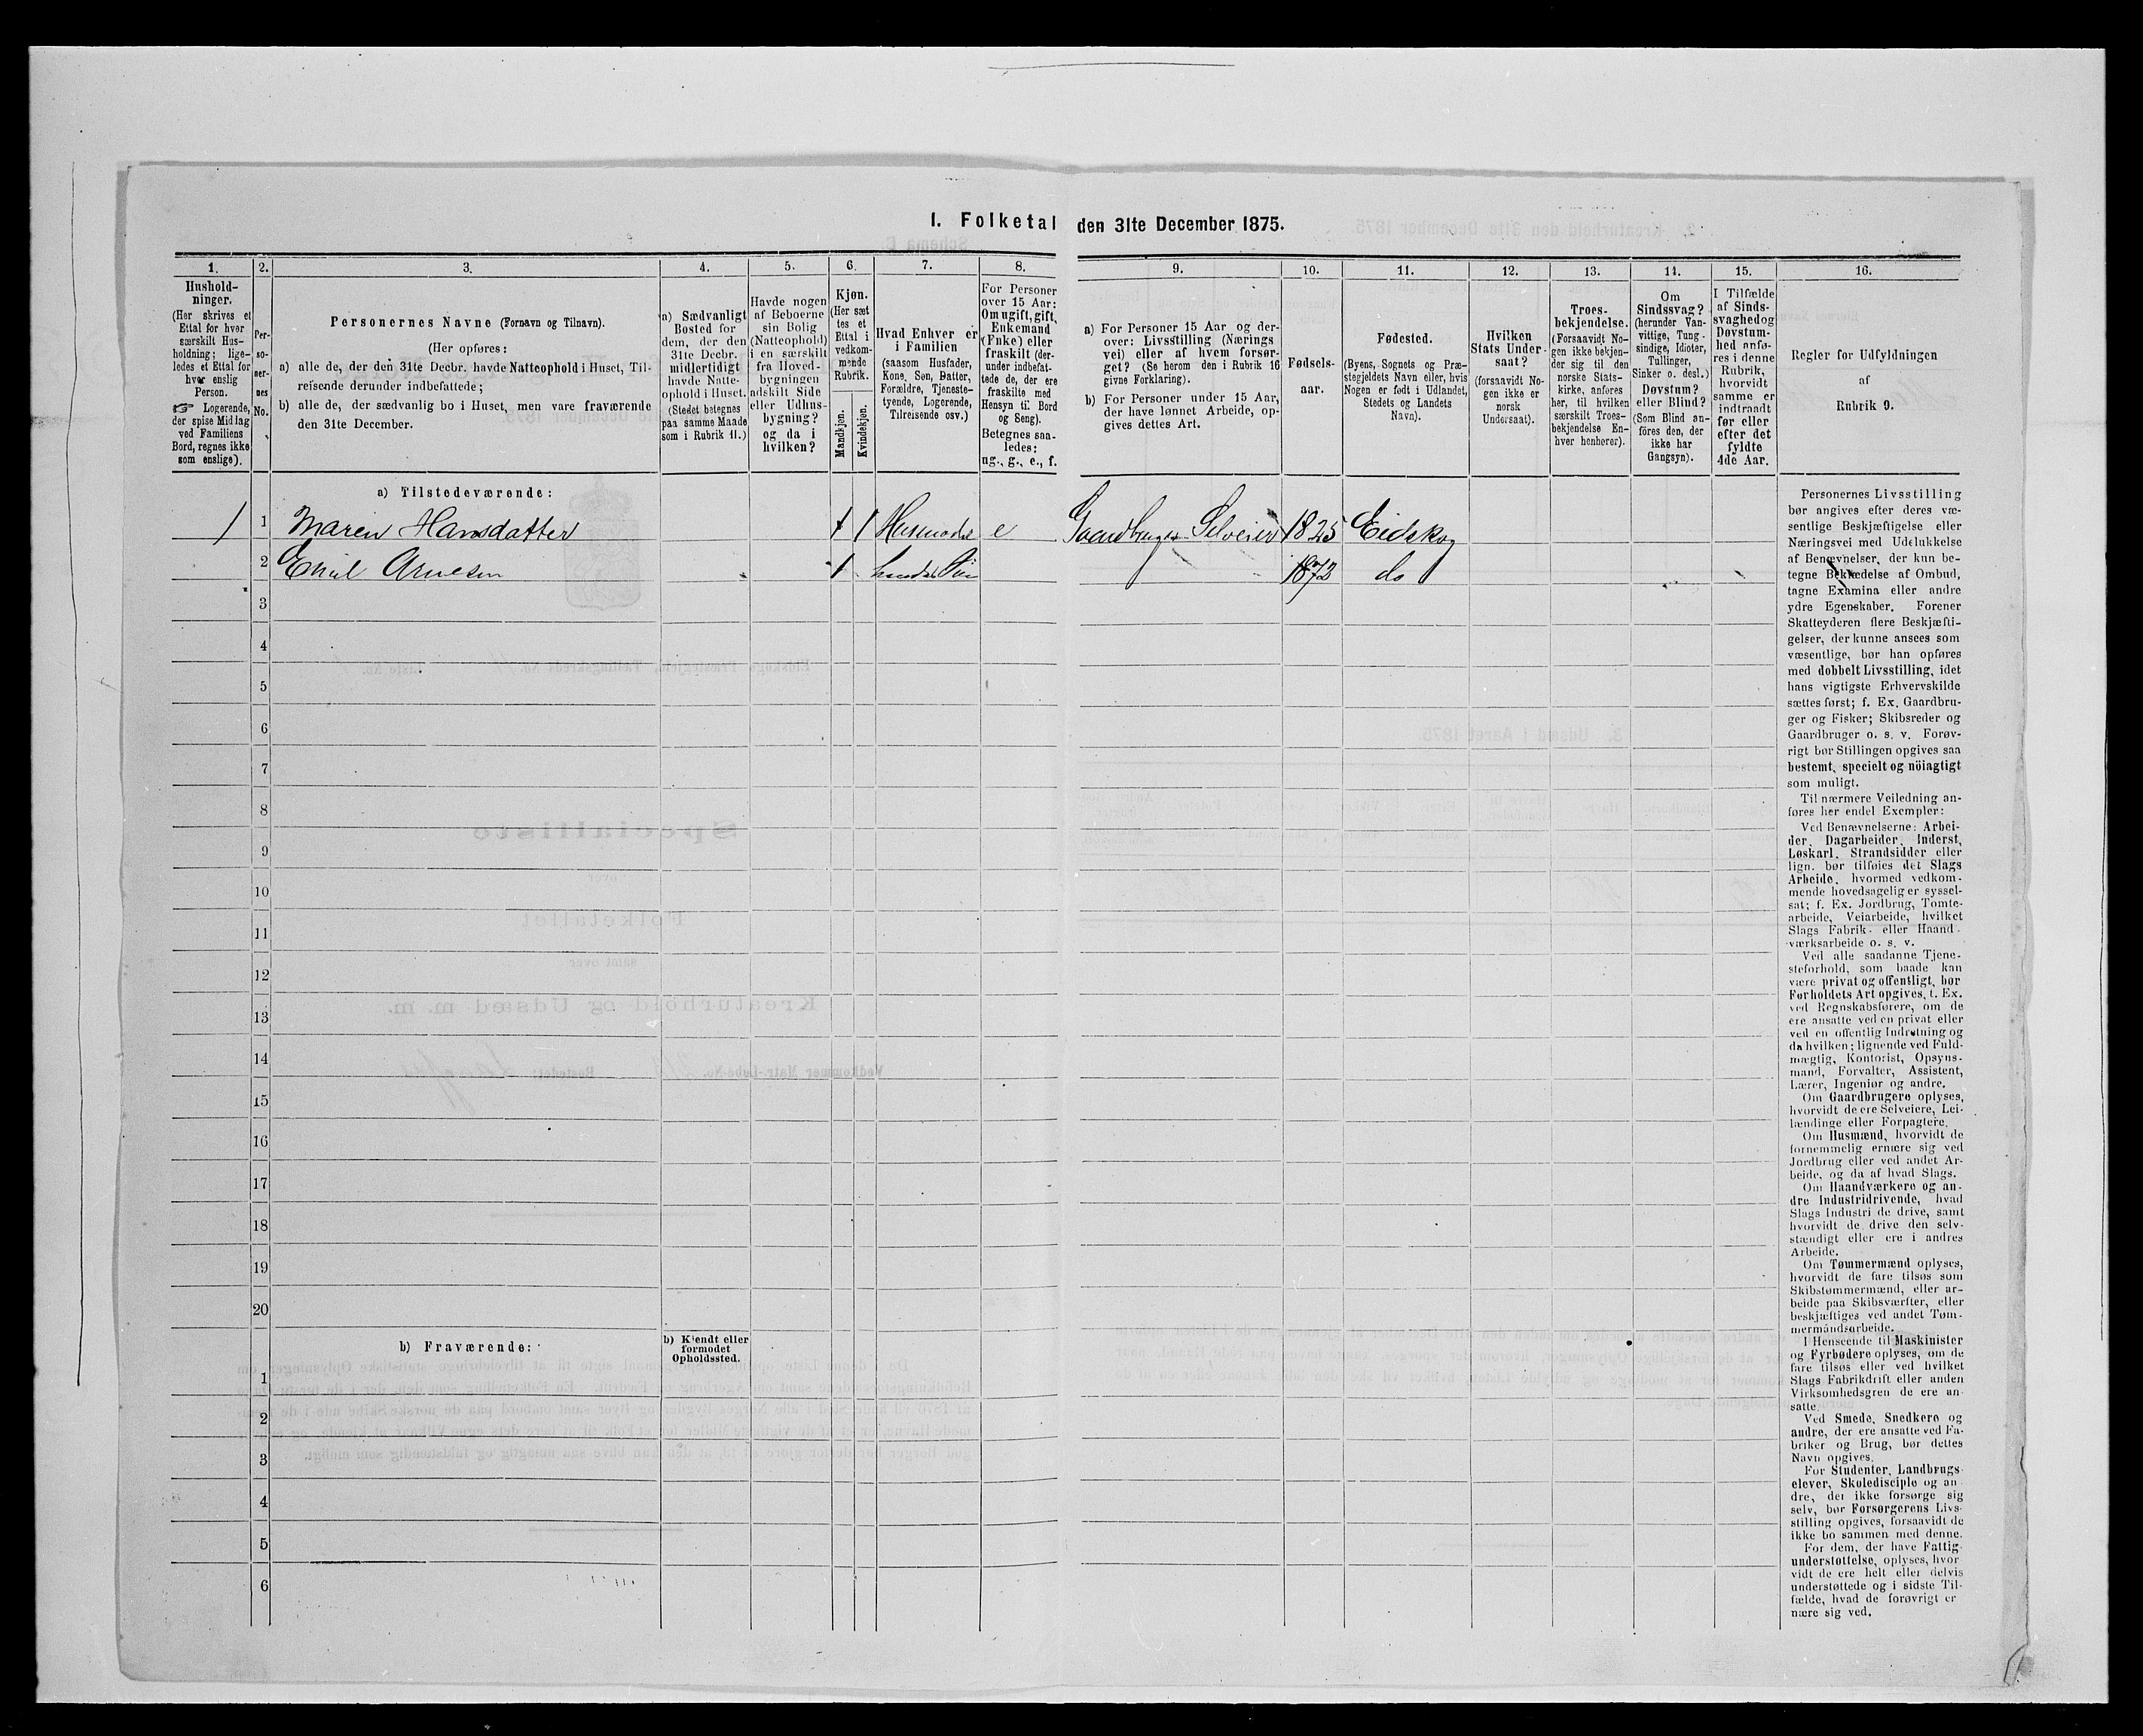 I. Folketal den 31te December 1875.
1. 2. 3. 4. 5. 6. 7. 8. 9. 10. 11. 12. 13. 14. 15. 16.
Hushold-
ninger.
(Her skrives et
Ettal for hver
særskilt Hus-
holdning; lige-
ledes et Ettal for
hver enslig
Person.
☞ Logerende,
der spise Middag
ved Familiens
Bord, regnes ikke
som enslige).
Per-
so-
ner-
nes
No.
Personernes Navne (Fornavn og Tilnavn).
(Her opføres:
a) alle de, der den 31te Decbr. havde Natteophold i Huset, Til-
reisende derunder indbefattede;
b) alle de, der sædvanlig bo i Huset, men vare fraværende
den 31te December.
a) Sædvanligt
Bosted for
dem, der den
31te Decbr.
midlertidigt
havde Natte-
ophold i Huset.
(Stedet betegnes
paa samme Maade
som i Rubrik 11.)
Havde nogen
af Beboerne
sin Bolig
(Natteophold)
i en særskilt
fra Hoved-
bygningen
adskilt Side
eller Udhus-
bygning?
og da i
hvilken?
Kjøn.
(Her sæt-
tes et
Ettal i
vedkom-
mende
Rubrik.
Mandkjøn.
Kvindekjøn.
Hvad Enhver er
i Familien
(saasom Husfader,
Kone, Søn, Datter,
Forældre, Tjeneste-
tyende, Logerende,
Tilreisende osv.)
For Personer
over 15 Aar:
Om ugift, gift,
Enkemand
(Enke) eller
fraskilt (der-
under indbefat-
tede de, der ere
fraskilte med
Hensyn til Bord
og Seng).
Betegnes saa-
ledes:
ug., g., e., f.
a) For Personer 15 Aar og der-
over: Livsstilling (Nærings
vei) eller af hvem forsør-
get? (Se herom den i Rubrik 16
givne Forklaring).
b) For Personer under 15 Aar,
der have lønnet Arbeide, op-
gives dettes Art.
Fødsels-
aar.
Fødested.
(Byens, Sognets og Præ-
stegjeldets Navn eller, hvis
Nogen er født i Udlandet,
Stedets og Landets
Navn).
Hvilken
Stats Under-
saat?
(forsaavidt No-
gen ikke er
norsk
Undersaat).
Troes-
bekjendelse.
(Forsaavidt No-
gen ikke bekjen-
der sig til den
norske Stats-
kirke, anføres
her, til hvilken
særskilt Troes-
bekjendelse En-
hver henhører).
Om
Sindssvag?
(herunder Van-
vittige, Tung-
sindige, Idioter,
Tullinger,
Sinker o. desl.)
Døvstum?
eller Blind?
(Som Blind an-
føres den, der
ikke har
Gangsyn).
I Tilfælde
af Sinds-
svaghed og
Døvstum-
hed anfø-
res i denne
Rubrik,
hvorvidt
samme er
indtraadt
før eller
efter det
fyldte
4de Aar.
Regler for Udfyldningen
af
Rubrik 9.
a) Tilstedeværende:
1 1 Maren Hansdatter 1 Husmoder e Gaardbruger Selveier 1825 Eidskog
2 Emil Arnesen 1 hendes Søn 1873 do
3
4
5
6
7
8
9
10
11
12
13
14
15
16
17
18
19
20
b) Fraværende:
b) Kjendt eller
formodet
Opholdssted.
1
2
3
4
5
6
Personernes Livsstilling
bør angives efter deres væ-
sentlige Beskjæftigelse eller
Næringsvei med Udelukkelse
af Benævnelser, der kun be-
tegne Beklædelse af Ombud,
tagne Examina eller andre
ydre Egenskaber. Forener
Skatteyderen flere Beskjæfti-
gelser, der kunne ansees som
væsentlige, bør han opføres
med dobbelt Livsstilling, idet
hans vigtigste Erhvervskilde
sættes først; f. Ex. Gaardbru-
ger og Fisker; Skibsreder og
Gaardbruger o. s. v. Forøv-
rigt bør Stillingen opgives saa
bestemt, specielt og nöiagtigt
som muligt.
Til nærmere Veiledning an-
føres her endel Exempler:
Ved Benævnelserne: Arbei-
der, Dagarbeider, Inderst,
Løskarl, Strandsidder eller
lign. bør tilføies det Slags
Arbeide, hvormed vedkom-
mende hovedsagelig er syssel-
sat; f. Ex. Jordbrug, Tomte-
arbeide, Veiarbeide, hvilket
Slags Fabrik- eller Haand-
værksarbeide o. s. v.
Ved alle saadanne Tjene-
steforhold, som baade kan
være privat og offentligt, bør
Forholdets Art opgives, t. Ex.
ved Regnskabsførere, om de
ere ansatte ved en privat eller
ved en offentlig Indretning og
da hvilken; lignende ved Fuld-
mægtig, Kontorist, Opsyns-
mand, Forvalter, Assistent,
Lærer, Ingeniør og andre.
Om Gaardbrugere oplyses,
hvorvidt de ere Selveiere, Lei-
lændinge eller Forpagtere.
Om Husmænd, hvorvidt de
fornemmelig ernære sig ved
Jordbrug eller ved andet Ar-
beide, og da af hvad Slags.
Om Haandværkere og an-
dre Industridrivende, hvad
Slags Industri de drive, samt
hvorvidt de drive den selv-
stændigt eller ere i andres
Arbeide.
Om Tømmermænd oplyses,
hvorvidt de fare tilsøs som
Skibstømmermænd, eller ar-
beide paa Skibsværfter, eller
beskjæftiges ved andet Tøm-
mermandsarbeide.
I Henseende til Maskinister
og Fyrbødere oplyses, om de
fare tilsøs eller ved hvilket
Slags Fabrikdrift eller anden
Virksomhedsgren de ere an-
satte.
Ved Smede, Snedkere og
andre, der ere ansatte ved Fa-
briker og Brug, bør dettes
Navn opgives.
For Studenter, Landbrugs-
elever, Skoledisciple og an-
dre, der ikke forsørge sig
selv, bør Forsørgerens Livs-
stilling opgives, forsaavidt de
ikke bo sammen med denne.
For dem, der have Fattig-
understøttelse, oplyses, hvor-
vidt de ere helt eller delvis
understøttede og i sidste Til-
fælde, hvad de forøvrigt er-
nære sig ved.